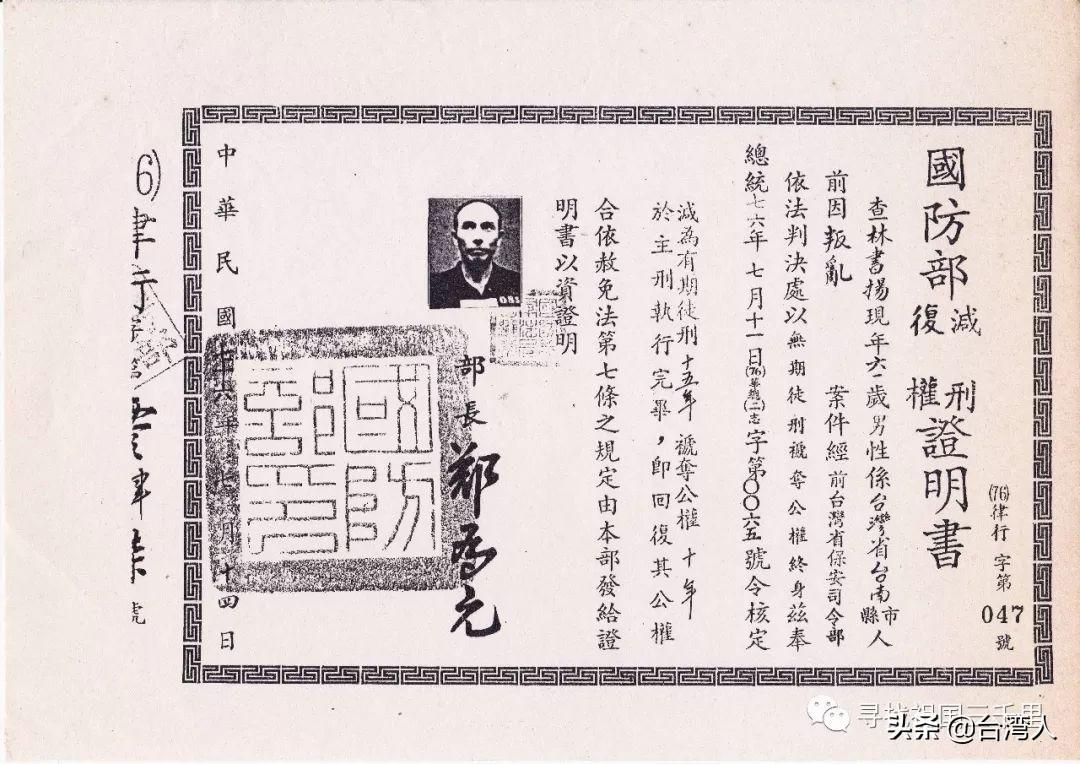 國防部減刑復權證明書
(76)律行字第047號
查林書揚現年六一歲男性係台灣省台南縣市人
前因叛亂案件經前台灣省保安司令部
依法判決處以無期徒刑褫奪公權終身茲奉
總統七六年七月十一日(76)華總(二)志字第〇〇六五號令核定
減為有期徒刑十五年褫奪公權十年
於主刑執行完畢，即回復其公權
合依赦免法第七條之規定由本部發給證
明書以資證明
部長鄭為元
中華民國七十六年七月十四日
國防部印
(6)律
號
寻找祖国三千里
头条@台湾人